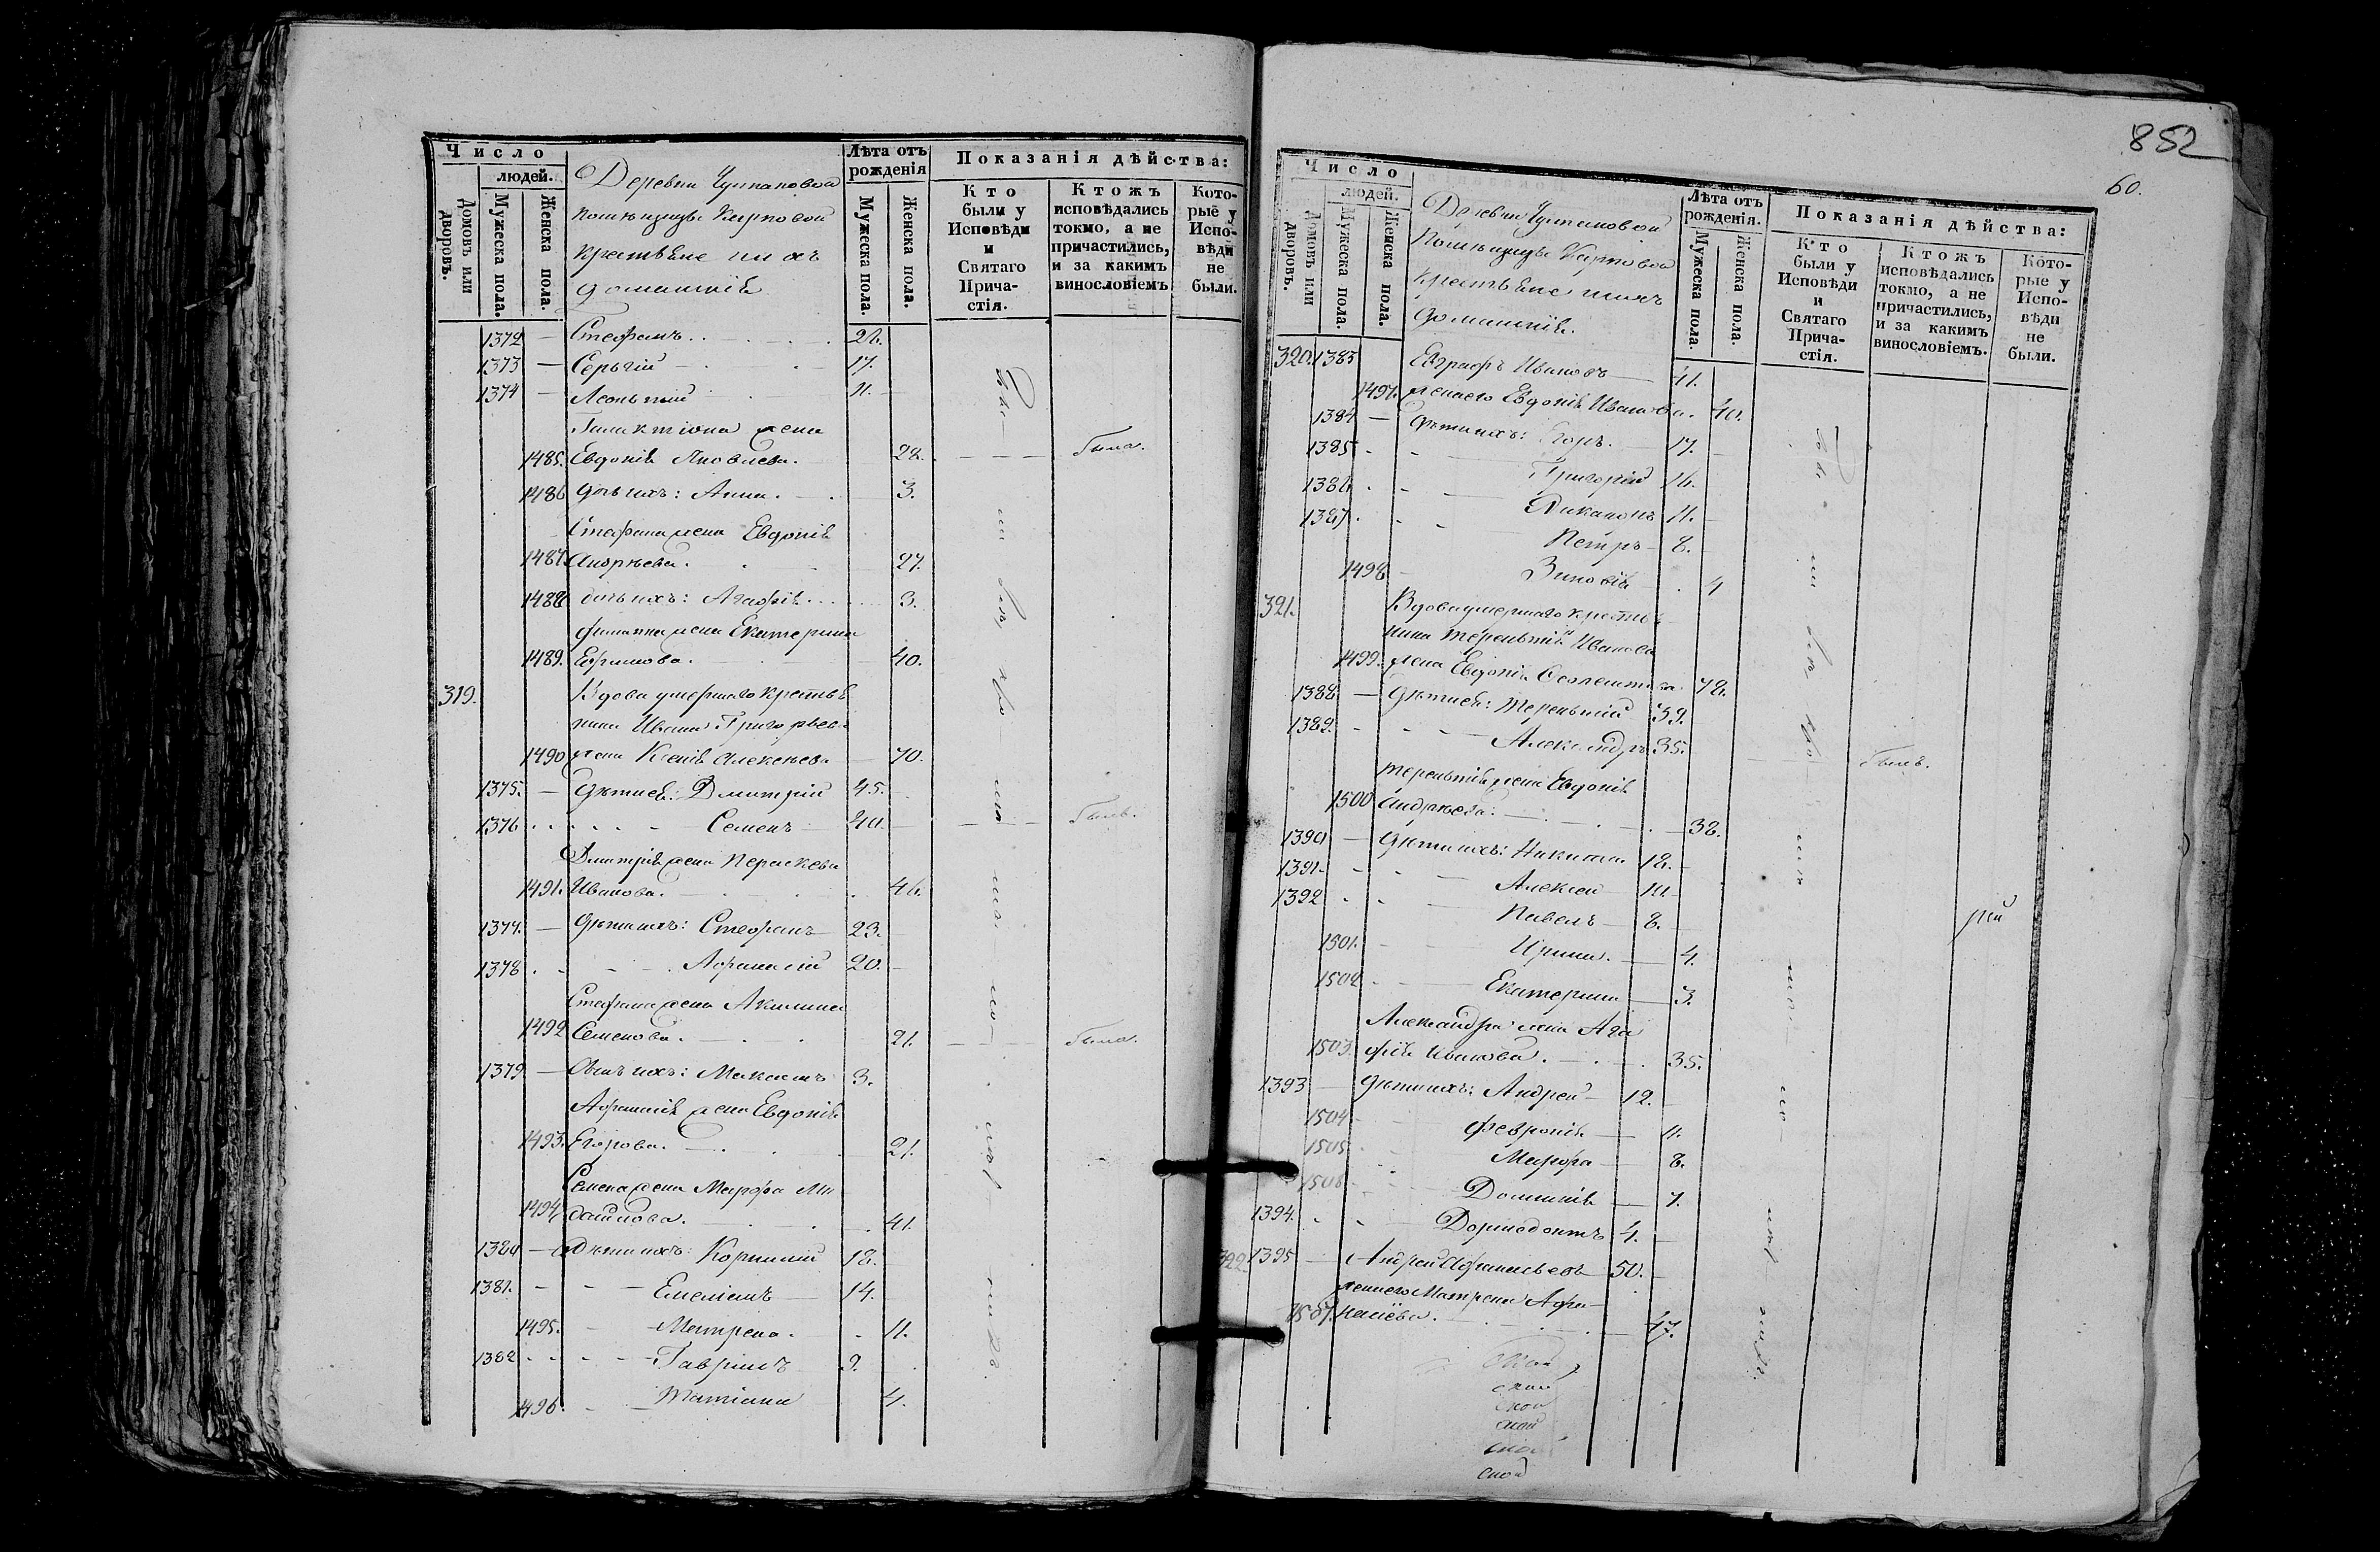 Число
людей.
Домовъ или дворовъ.
Мужеска пола.
Женска пола.
Деревни
помѣщицы Карповой
крестьяне и ихъ
домашніе
Лѣта отъ рожденія
Мужеска пола.
Женска пола.
Показанія дѣйства:
Кто были у Исповѣди и Святаго Причастія.
Ктожъ исповѣдались токмо, а не причастились, и за какимъ винословіемъ
Которые у Исповѣди не были.
1372 — Стефанъ 26.
1373 — Сергій 17.
1374 — Леонтий 11.
Галактіона жена
1485. Евдокія Яковлева. 28. была.
1486 дочь ихъ: Анна. 3.
Стефана жена Евдокія
1487. Андреева. 27.
1488 дочь ихъ: Агафія 3.
жена Екатерина
1489. Ефимова. 40.
319. Вдова умершаго крестья
нина Ивана Григорьева
1490 жена Ксенія Алексѣева 70.
1375. — Дѣти ея: Дмитрій 45.
1376 Семенъ 40. былъ.
Дмитрія жена Параскева
1491. Иванова. 46.
1377. — Дѣти ихъ: Стефанъ 23.
1378 Афанасій 20.
Стефана жена Акилина
1492 Семенова. 21. была.
1379 — Сынъ ихъ: Максимъ 3.
Афанасія жена Евдокія
1493. Егорова. 21.
Семена жена Марфа
1494 41.
1380 — Дѣти ихъ: Корнилий 18.
1381. Емеліанъ 14.
1495. Матрена. 11.
1382 Гавріилъ 9.
1496. Татіана 4.
852
60.
Число
людей.
Домовъ или дворовъ.
Мужеска пола.
Женска пола.
Деревни
Помѣщицы Карповой
крестьяне и ихъ
домашніе.
Лѣта отъ рожденія.
Мужеска пола.
Женска пола.
Показанія дѣйства:
Кто были у Исповѣди и Святаго Причастія.
Ктожъ исповѣдались токмо, а не причастились, и за какимъ винословіемъ.
Которые у Исповѣди не были.
320. 1383 Евграфъ Ивановъ 41.
1497. жена его Евдокія Иванова. 40.
1384 — Дѣти ихъ: Егоръ. 17.
1385 Григорій 16.
1386 11.
1387 Петръ 8.
1498 Зиновія 4
321. Вдова умершаго крестья
нина Терентія Иванова
1499. жена Евдокія 78.
1388 — Дѣти ея: Терентій 39.
1389. Александръ 35. былъ.
Терентія жена Евдокія
1500 Андреева. 38.
1390 — Дѣти ихъ: Никита 18.
1391. Алексей 10.
1392 Павелъ 8.
1501. Ирина. 4.
1502 Екатерина 3.
Александра жена Ага
1503. фія Иванова. 35.
1393 — Дѣти ихъ: Андрей 12.
1504 Февронія 11.
1505 Марфа 8.
1506 Домникія 7.
1394. Дормедонтъ 4.
322 1395 Андрей Афанасьевъ 50.
жена его Матрена Афа-
1507. насіева. 47.